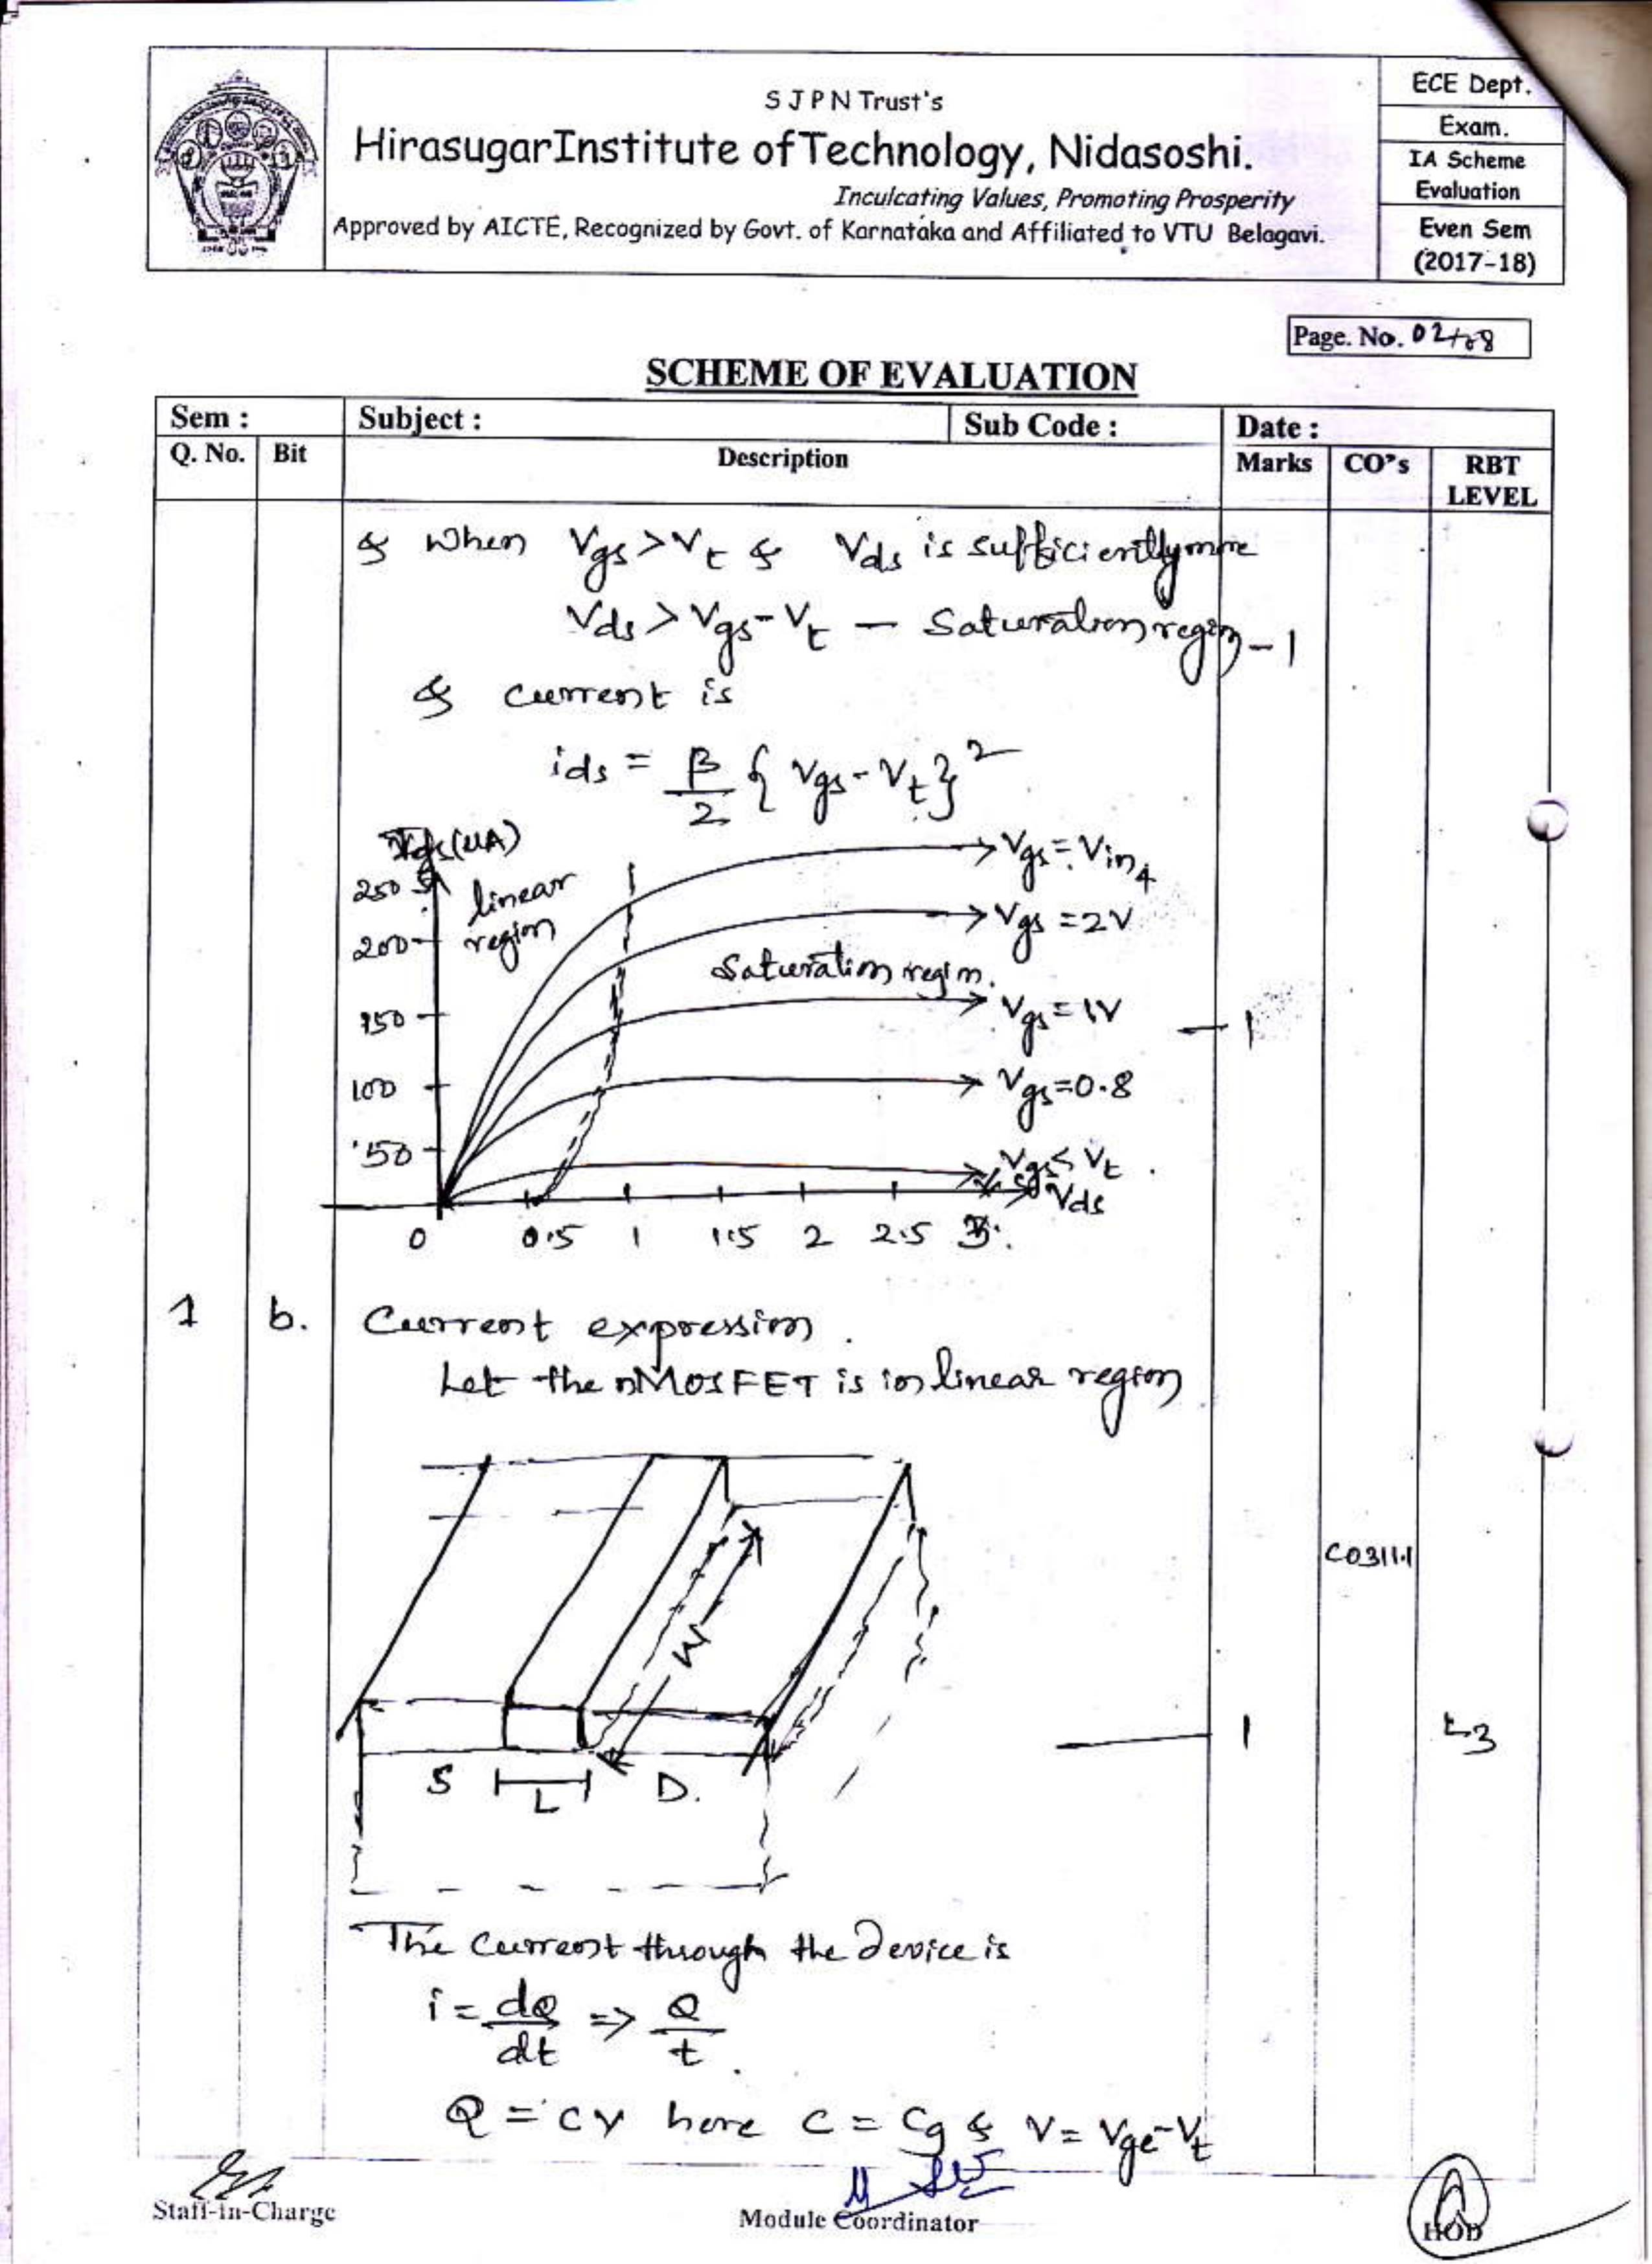 S J P N Trust's
HirasugarInstitute of Technology, Nidasoshi.
Inculcating Values, Promoting Prosperity
Approved by AICTE, Recognized by Govt. of Karnataka and Affiliated to VTU Belagavi.
ECE Dept.
Exam.
IA Scheme
Evaluation
Even Sem
(2017-18)
Page. No. 02/08
SCHEME OF EVALUATION
Sem : Subject : Sub Code : Date :
Q. No. Bit Description Marks CO"s RBT
LEVEL
& When Vgs>Vt & Vds is sufficiently more
Vds > Vgs-Vt - Saturation region - 1
& current is
ids = β/2 { Vgs-Vt}²
Ids(uA)
250
200
150
100
50
linear
region
Saturation region.
Vgs = Vin4
Vgs = 2V
Vgs = 1V
Vgs=0.8
Vgs ≤ Vt
Vds
0 0.5 1 1.5 2 2.5 3
- 1
1 b. Current expression.
Let the nMOSFET is in linear region
W
CO311.1
S L D.
1 L3
The current through the device is
i = dQ/dt => Q/t
Q = CV here C = Cg & V = Vgc-Vt
Staff-in-Charge
Module Coordinator
HOD